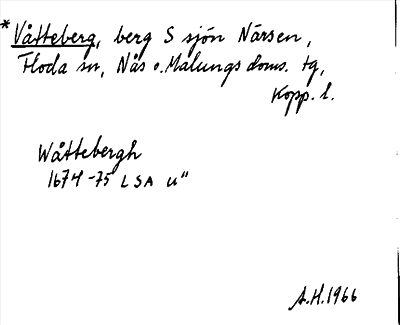 *Våtteberg, berg S sjön Närsen,
Floda sn, Nås o. Malungs doms. tg,
Kopp. l.
Wåttebergh
1674-75 LSA u"
A.H. 1966